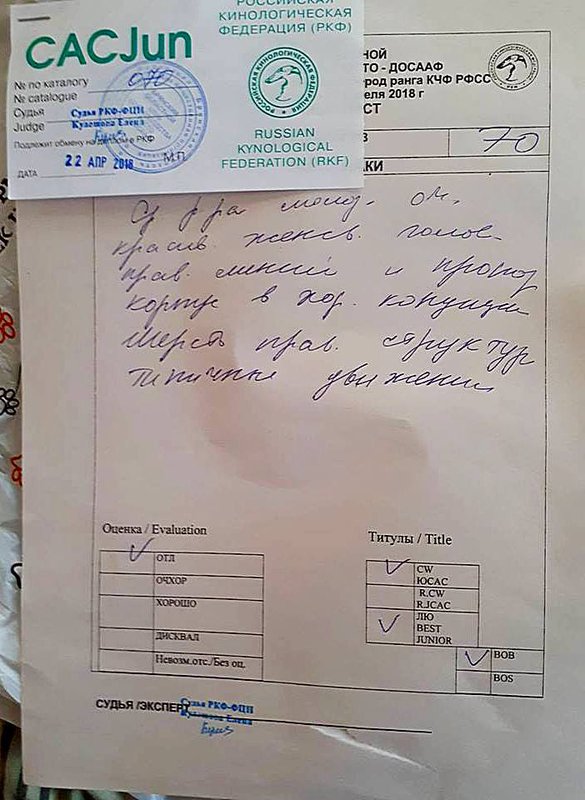 РОССИЙСКАЯ
КИНОЛОГИЧЕСКАЯ
ФЕДЕРАЦИЯ (РКФ)
CACJun
№ по каталогу 070
№ catalogue
Судья Судья РКФ-FCI
Judge Елена
Подлежит обмену на диплом в РКФ
22 АПР 2018 М.П.
ДАТА
РОССИЙСКАЯ КИНОЛОГИЧЕСКАЯ ФЕДЕРАЦИЯ
RUSSIAN
KYNOLOGICAL
FEDERATION (RKF)
НОЙ
ТО - ДОСААФ
род ранга КЧФ РФСС
еля 2018 г
СТ
70
КИ
Ср р-ра молод.
красив. женств. голов
прав. линий и пропор
корпус в хор. кондиции
Шерсть прав. структур
Типичные движении
Оценка / Evaluation
ОТЛ
ОЧХОР
ХОРОШО
ДИСКВАЛ
Невозм.отс./Без оц.
Титулы / Title
CW
ЮСАС
R.CW
R.JCAC
ЛЮ
BEST
JUNIOR
BOB
BOS
СУДЬЯ /ЭКСПЕРТ Судья РКФ-FCI
Елена